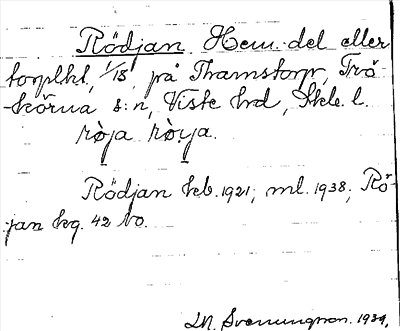 Rödjan. Hem.del eller
torplht, 1/18, på Thamstorp, Trä-
körna s:n, Viste hd, Skb. l.
ròja ròija.
Rödjan kb. 1921; ml. 1938, Rö-
jan kg. 42 No.
Svenungson. 1939.